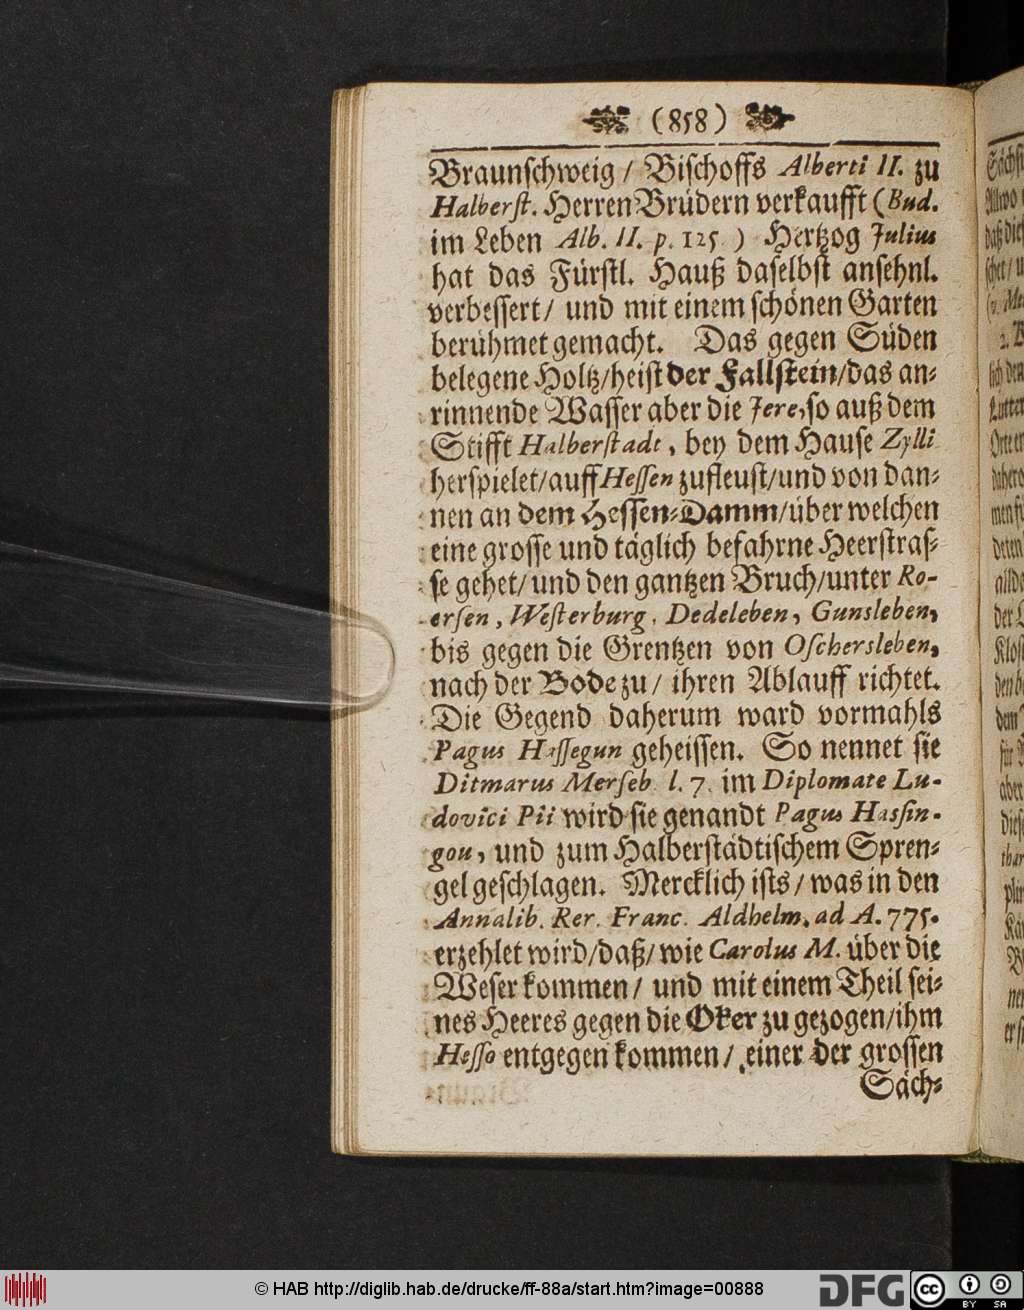 (858)
Braunschweig / Bischoffs Alberti II. zu
Halberst. Herren Brüdern verkaufft (Bud.
im Leben Alb. II. p. 125.) Hertzog Julius
hat das Fürstl. Hauß daselbst ansehnl.
verbessert / und mit einem schönen Garten
berühmet gemacht. Das gegen Süden
belegene Holtz / heist der Fallstein / das an-
rinnende Wasser aber die Jere, so auß dem
Stifft Halberstadt, bey dem Hause Zylli
herspielet / auff Hessen zufleust / und von dan-
nen an dem Hessen-Damm / über welchen
eine grosse und täglich befahrne Heerstras-
se gehet / und den gantzen Bruch / unter Ro-
ersen, Westerburg, Dedeleben, Gunsleben,
bis gegen die Grentzen von Oschersleben,
nach der Bode zu / ihren Ablauff richtet.
Die Gegend daherum ward vormahls
Pagus Hassegun geheissen. So nennet sie
Ditmarus Merseb. l. 7. im Diplomate Lu-
dovici Pii wird sie genandt Pagus Hassin-
gou, und zum Halberstädtischem Spren-
gel geschlagen. Mercklich ists / was in den
Annalib. Rer. Franc. Aldhelm. ad A. 775.
erzehlet wird / daß / wie Carolus M. über die
Weser kommen / und mit einem Theil sei-
nes Heeres gegen die Oker zu gezogen / ihm
Hesso entgegen kommen / einer der grossen
Säch-
© HAB http://diglib.hab.de/drucke/ff-88a/start.htm?image=00888
DFG
cc BY SA